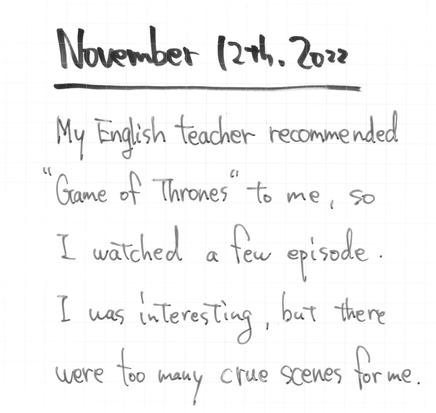 November 12th. 2022
My English teacher recommended
"Game of Thrones" to me, so
I watched a few episode.
I was interesting, but there
were too many crue scenes for me.